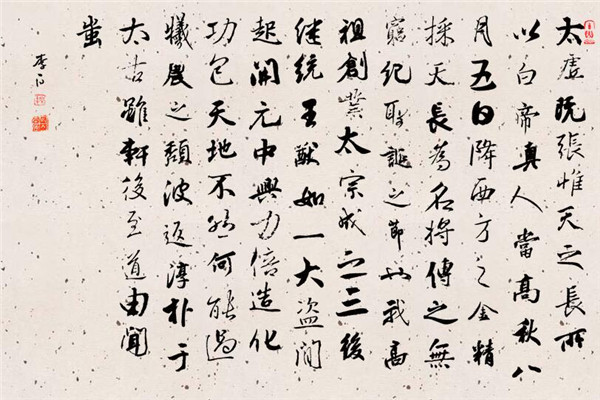 太虛既張惟天之長所
以白帝真人當高秋八
月五日降西方之金精
採天長為名將傳之無
窮紀聖誕之節也我高
祖創業太宗成之三後
继统王猷如一大盗间
起開元中興力倍造化
功包天地不然何能過
犧農之頹波返淳朴于
太古雖軒後至道由聞
蚩
李白